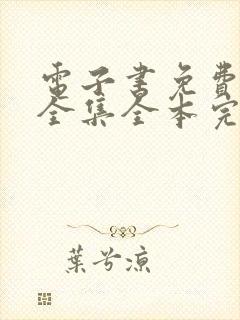 電子書免費
全集全本完
葉兮涼